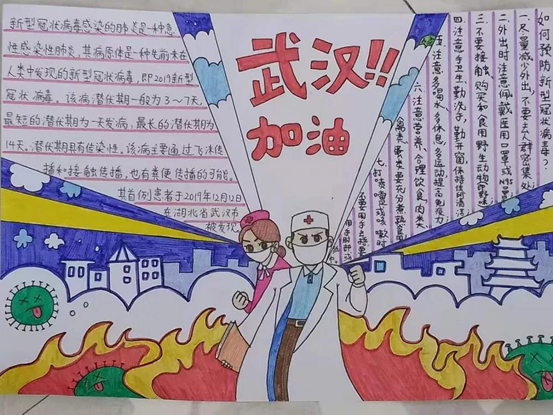 武汉!!
加油
新型冠状病毒感染的肺炎是一种急
性感染性肺炎,其病原体是一种先前未在
人类中发现的新型冠状病毒,即2019新型
冠状病毒。该病潜伏期一般为3~7天,
最短的潜伏期为1天发病,最长的潜伏期为
14天。潜伏期具有传染性,该病主要通过飞沫传
播和接触传播,也有粪便传播的可能,
其首例患者于2019年12月12日
在湖北省武汉市
被发现
如何预防新型冠状病毒?
一.尽量减少外出,不要去人群密集处
二.外出时注意佩戴医用口罩或N95
三.不要接触,购买和食用野生动物(野味)
四.注意手卫生,勤洗手,勤开窗,保持
五.注意多喝水,多休息,多运动提高免疫力
六.注意营养,合理饮食,肉类,
禽类,蛋类要充分煮熟食用
七.打喷嚏或咳嗽时
不要用手去捂